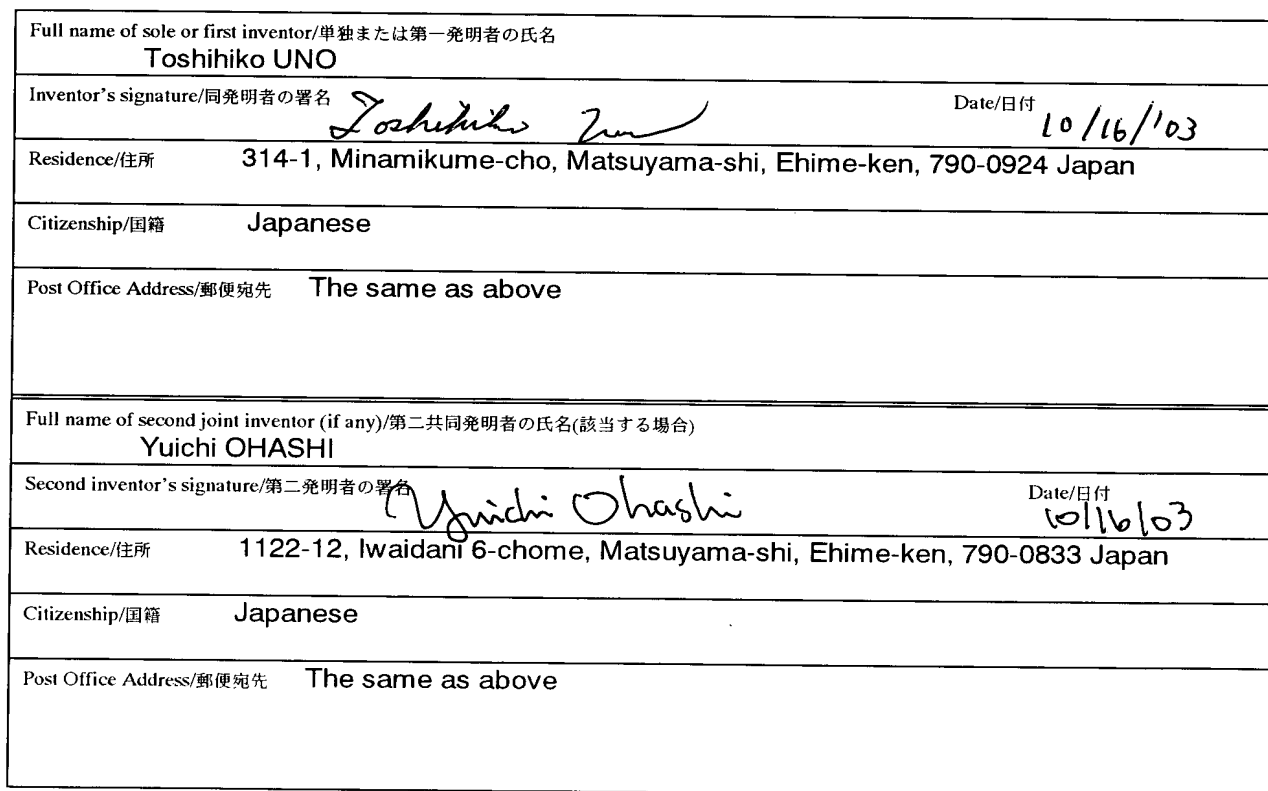 Full name of sole or first inventor/単独または第一発明者の氏名
Toshihiko UNO
Inventor's signature/同発明者の署名 Toshihiko Uno Date/日付 10/16/'03
Residence/住所 314-1, Minamikume-cho, Matsuyama-shi, Ehime-ken, 790-0924 Japan
Citizenship/国籍 Japanese
Post Office Address/郵便宛先 The same as above
Full name of second joint inventor (if any)/第二共同発明者の氏名(該当する場合)
Yuichi OHASHI
Second inventor's signature/第二発明者の署名 Yuichi Ohashi Date/日付 10/16/03
Residence/住所 1122-12, Iwaidani 6-chome, Matsuyama-shi, Ehime-ken, 790-0833 Japan
Citizenship/国籍 Japanese
Post Office Address/郵便宛先 The same as above